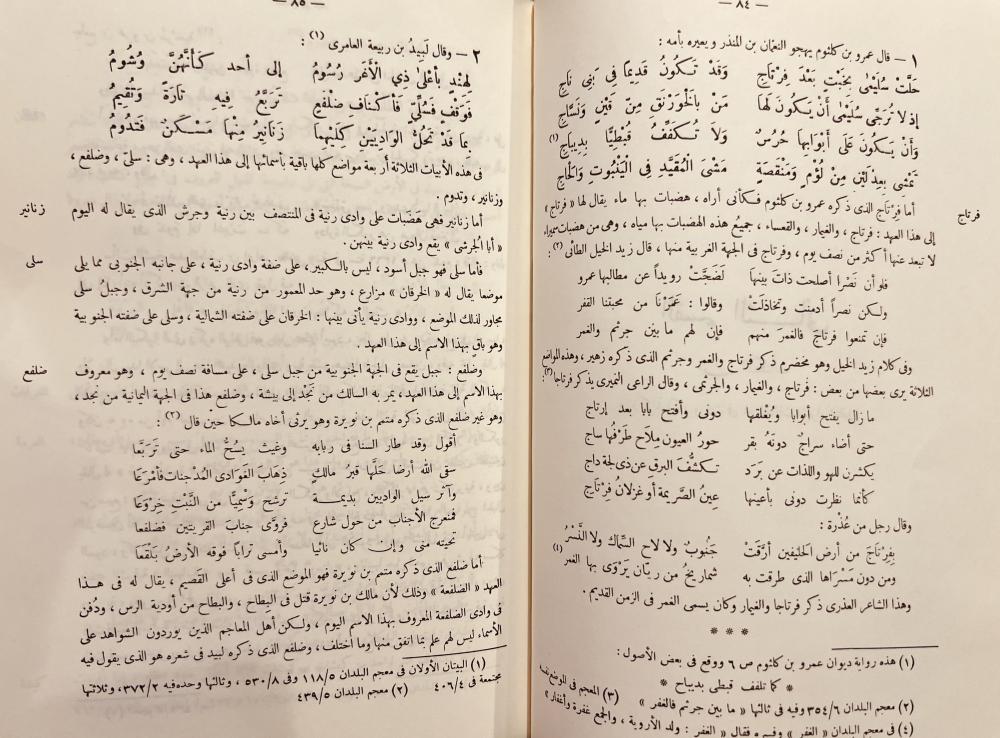 — ٨٤ —
١ — قال عمرو بن كلثوم يهجو النعمان بن المنذر ويعيره بأمه :
حَلَّت سُلَيْمَى بِخَبْتٍ بَعْدَ فِرْتَاجِ وَقَدْ تَكُونُ قَدِيمًا فِى بَنِى نَاجِ
إذ لا تُرَجِّى سُلَيْمَى أَنْ يَكُونَ لَهَا مَنْ بِالْخَوَرْنَقِ مِنْ قَيْنٍ وَنَسَّاجِ
وَأَن يَكُونَ عَلَى أَبْوَابِهَا حُرُسٌ وَلَا تُكَفِّفُ قُبْطِيًّا بِدِيبَاجِ (١)
تَمْشِى بِعِدْلَيْنِ مِنْ لُؤْمٍ وَمَنْقَصَةٍ مَشْىَ الْمُقَيَّدِ فِى الْيَنْبُوتِ وَالْحَاجِ
فرتاج
أما فِرْتَاج الذى ذكره عمرو بن كلثوم فكأنى أراه ، هضبات بها ماء يقال لها « فرتاج »
إلى هذا العهد : فرتاج ، والغيار ، والقعساء ، جميعُ هذه الهضبات بها مياه ، وهى من هضبات سميراء
لا تبعد عنها أكثر من نصف يوم ، وفرتاج فى الجهة الغربية منها ، قال زيد الخيل الطائى (٢) :
فلو أن نَصْرًا أصلحت ذاتَ بينها لَضَجَّتْ رويداً عن مطالبها عمرو
ولكن نصراً أدمنت وتخاذلَتْ وقالوا : عَمَرْنَا من محبتنا القفر
فإن تمنعوا فرتاجَ فالغمرَ منهم فإن لهم ما بين جرثم والغمر
وفى كلام زيد الخيل وهو مخضرم ذكر فرتاج والغمر وجرثم الذى ذكره زهير ، وهذه المواضع
الثلاثة يرى بعضها من بعض : فرتاج ، والغيار ، والجرثمى ، وقال الراعى النميرى يذكر فرتاجا (٣) :
ما زال يفتح أبوابا ويُغْلقها دونى وأفتح بابا بعد إرتاج
حتى أضاء سراجٌ دونَهُ بقر حورُ العيون مِلاح طَرْفُها ساج
يكشرن للهو واللذات عن بَرَد تكشُّفَ البرق عن ذى لجة داج
كأنما نظرت دونى بأعينها عِينُ الصَّريمة أو غزلانُ فِرْتَاج
وقال رجل من عُذْرة :
بِفِرْتَاجَ من أرض الحليفين أرَّقَتْ جَنُوبٌ ولا لاح السِّماك ولا النَّسْرُ
ومن دون مَسْرَاها الذى طرقت به شماريخُ من ريّان يَرْوَى بها الغفر (٤)
وهذا الشاعر العذرى ذكر فرتاجا والغيار وكان يسمى الغمر فى الزمن القديم .
* * *
(١) هذه رواية ديوان عمرو بن كلثوم ص ٦ ووقع فى بعض الأصول :
* كما تلفف قبطى بديباح *
(٢) معجم البلدان ٣٥٤/٦ وفيه فى ثالثها « ما بين جرثم فالغفر » (٣) المعجم فى الموضع نفسه
(٤) فى معجم البلدان « الغفر » وفسره فقال « الغفر : ولد الأروية ، والجمع غفرة وأغفار »
— ٨٥ —
٢ — وقال لَبِيدُ بن ربيعة العامرى (١) :
لِهِنْدٍ بأعْلَى ذِي الْأَغَر رُسُومُ إلى أحد كَأَنَّهُنَّ وُشُومُ
فَوَقْفٍ فَسُلِّىٍّ فَأَكْنَافِ ضَلْفَعٍ تَرَبَّعُ فِيهِ تَارَةً وَتُقِيمُ
بِمَا قَدْ تَحُلُّ الْوَادِيَيْنِ كِلَيْهِما زَنَانِيرُ مِنْهَا مَسْكَنٌ فَتَدُومُ
فى هذه الأبيات الثلاثة أربعة مواضع كلها باقية بأسمائها إلى هذا العهد ، وهى : سلىّ ، وضلفع ،
وزنانير ، وتدوم .
زنانير
أما زنانير فهى هَضَبات على وادى رنية فى المنتصف بين رنية وجرش الذى يقال له اليوم
« أبا الجرشى » يقع وادى رنية بينهن .
سلى
فأما سلى فهو جبل أسود ، ليس بالكبير ، على ضفة وادى رنية ، على جانبه الجنوبى مما يلى
موضعا يقال له « الخرقان » مزارع ، وهو حد المعمور من رنية من جهة الشرق ، وجبلُ سلى
مجاور لذلك الموضع ، ووادى رنية يأتى بينها : الخرقان على ضفته الشمالية ، وسلى على ضفته الجنوبية
وهو باقٍ بهذا الاسم إلى هذا العهد .
ضلفع
وضلفع : جبل يقع فى الجهة الجنوبية من جبل سلى ، على مسافة نصف يوم ، وهو معروف
بهذا الاسم إلى هذا العهد ، يمر به السالك من نَجْد إلى بيشة ، وضلفع هذا فى الجهة اليمانية من نجد ،
وهو غير ضلفع الذى ذكره متمم بن نويرة وهو يرثى أخاه مالكا حين قال (٢) :
أقول وقد طار السنا فى ربابه وغيث يسُحُّ الماء حتى تَرَبَّعا
سقى الله أرضا حَلَّها قبرُ مالكٍ ذِهَابَ الغَوَادى المُدْجنات فأمْرَعَا
وآثر سيل الواديين بديمة ترشح وَسْمِيًّا من النَّبْتِ خِرْوَعَا
فمنعرج الأجناب من حول شارع فروَّى جناب القريتين فضلفعا
تحيته منى وإن كان نائيا وأمسى ترابًا فوقه الأرضُ بَلْقَعَا
أما ضلفع الذى ذكره متمم بن نويرة فهو الموضع الذى فى أعلى القَصِيم ، يقال له فى هذا
العهد « الضلفعة » وذلك لأن مالك بن نويرة قتل فى البِطاح ، والبطاح من أودية الرس ، ودُفن
فى وادى الضلفعة المعروف بهذا الاسم اليوم ، ولكن أهل المعاجم الذين يوردون الشواهد على
الأسماء ليس لهم علم بما اتفق منها وما اختلف ، وضلفع الذى ذكره لبيد فى شعره هو الذى يقول فيه
(١) البيتان الأولان فى معجم البلدان ١١٨/٥ وفى ٥٣٠/٨ ، وثالثها وحده فيه ٣٧٢/٢ ، وثلاثتها
مجتمعة فى ٤٠٦/٤ (٢) معجم البلدان ٤٣٩/٥